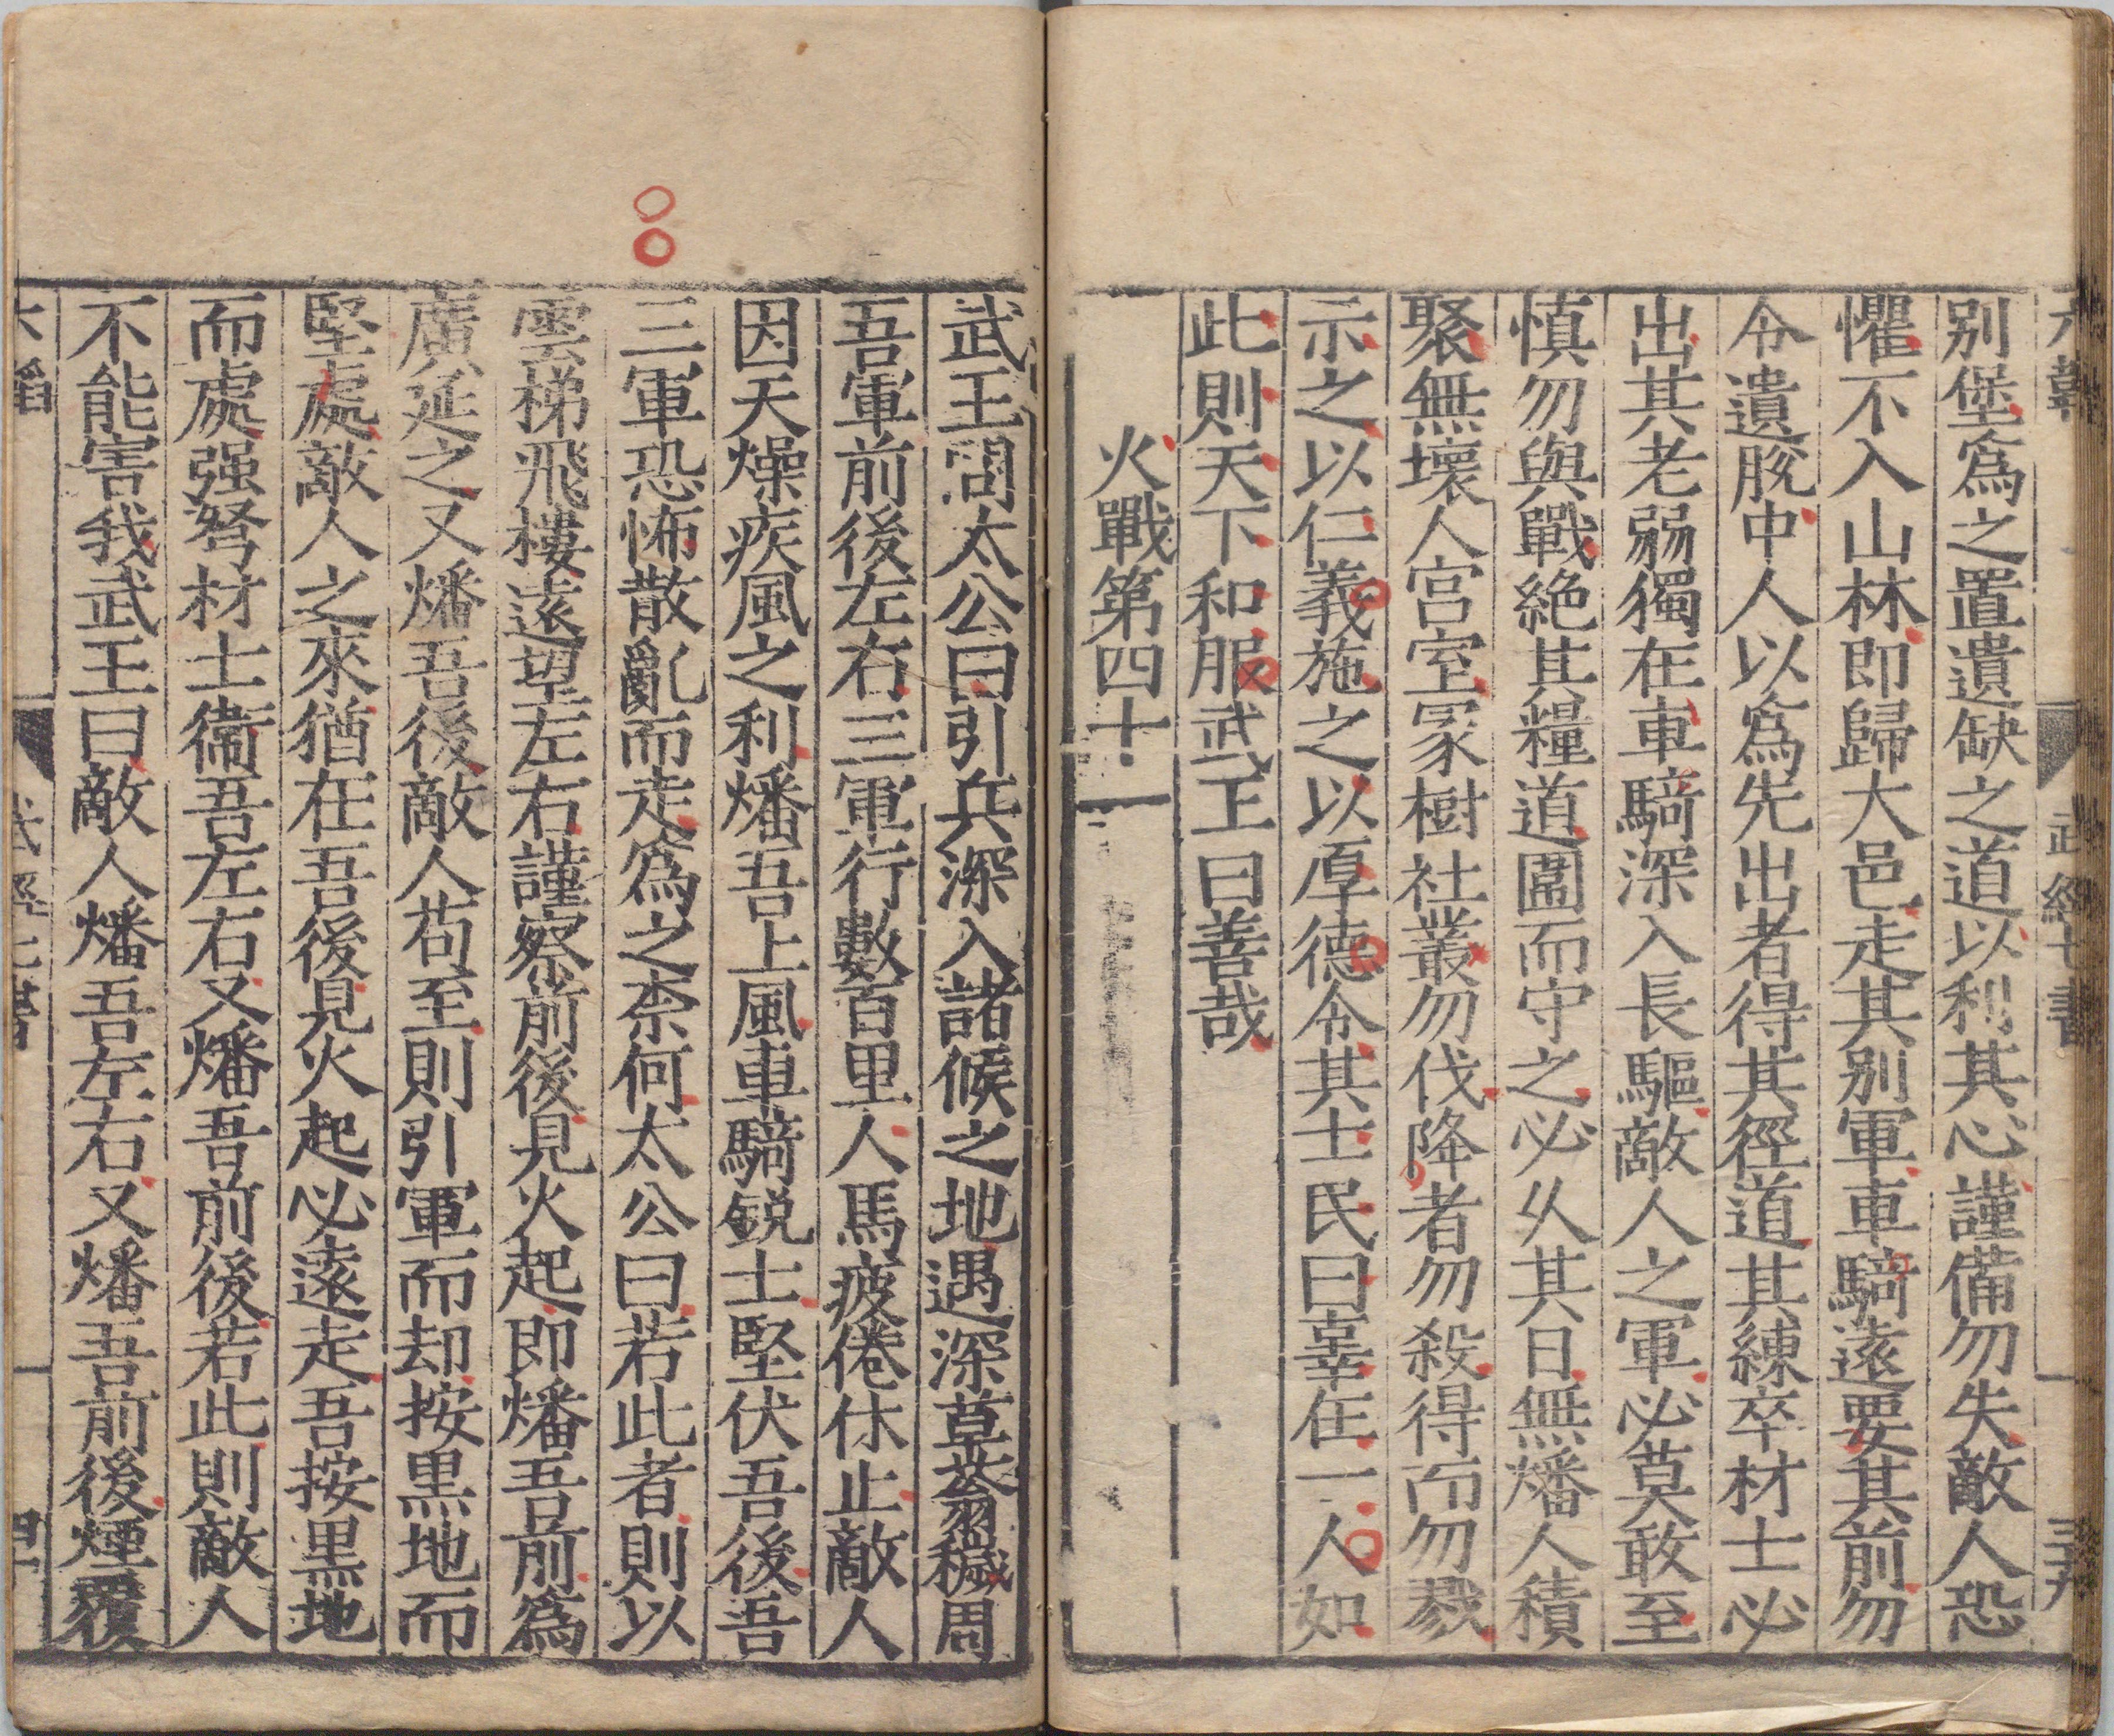 六韜 武經七書 三十九
別堡爲之置遺缺之道以利其心謹備勿失敵人恐
懼不入山林即歸大邑走其別軍車騎遠要其前勿
令遺脫中人以爲先出者得其徑道其練卒材士必
出其老弱獨在車騎深入長驅敵人之軍必莫敢至
慎勿與戰絶其糧道圍而守之必乆其日無燔人積
聚無壞人宮室冢樹社叢勿伐降者勿殺得而勿戮
示之以仁義施之以厚德令其士民曰辜在一人如
此則天下和服武王曰善哉
火戰第四十一
武王問太公曰引兵深入諸候之地遇深草蓊穢周
吾軍前後左右三軍行數百里人馬疲倦休止敵人
因天燥疾風之利燔吾上風車騎銳士堅伏吾後吾
三軍恐怖散亂而走爲之柰何太公曰若此者則以
雲梯飛樓遠望左右謹察前後見火起即燔吾前爲
廣延之又燔吾後敵人苟至則引軍而却按黑地而
堅處敵人之來猶在吾後見火起必遠走吾按黑地
而處强弩材士衞吾左右又燔吾前後若此則敵人
不能害我武王曰敵人燔吾左右又燔吾前後煙覆
六韜 武經七書 四十